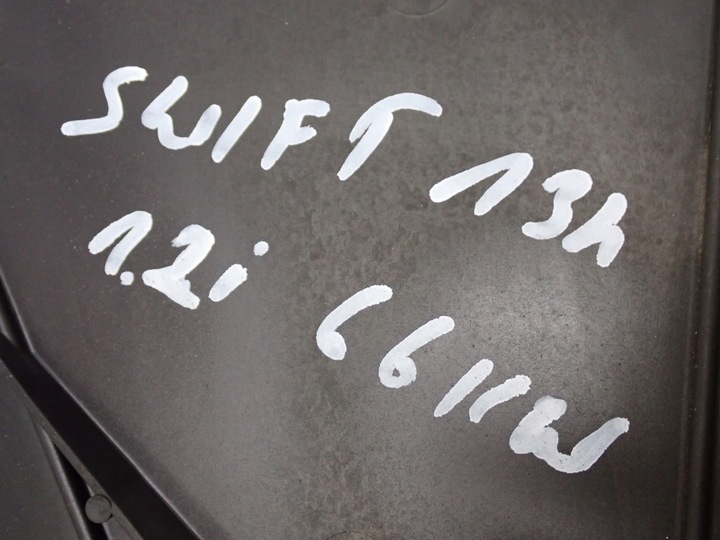 SWIFT 13h
1.2i 66KW